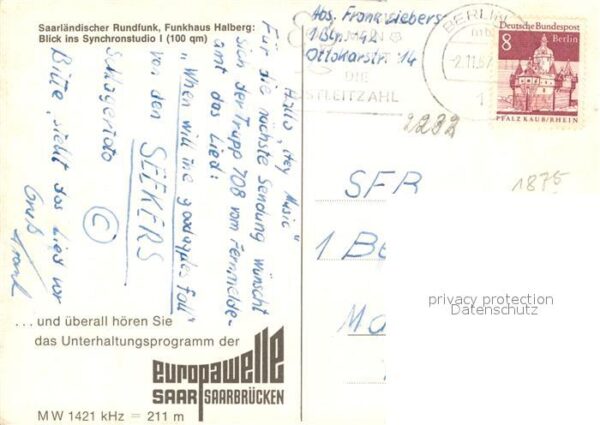 Saarländischer Rundfunk, Funkhaus Halberg:
Blick ins Synchronstudio I (100 qm)
Hallo „Hey Music“
Für die nächste Sendung wünscht
sich der Trupp 708 vom Fernmelde-
amt das Lied:
„When will the goodapples fall“
von den SEEKERS
Schlagerido
©
Bitte, zieht das Lied vor
Gruß
Frank
... und überall hören Sie
das Unterhaltungsprogramm der
europawelle
SAAR SAARBRÜCKEN
MW 1421 kHz = 211 m
Abs. Frank
1 Bln. 42
Ottokarstr. 14
DIE
POSTLEITZAHL
BERLIN
-2.11.67
8
Deutsche Bundespost
Berlin
PFALZ KAUB/RHEIN
2232
1875
SFB
1 Be
Ma
privacy protection
Datenschutz